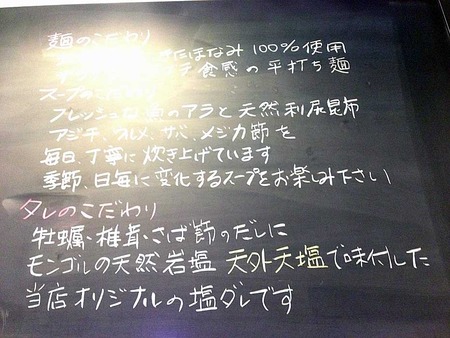 麺のこだわり
きたほなみ 100%使用
食感の平打ち麺
スープのこだわり
フレッシュな魚のアラと天然利尻昆布
アジ干、ウルメ、サバ、メジカ節を
毎日、丁寧に炊き上げています
季節、日毎に変化するスープをお楽しみ下さい
タレのこだわり
牡蠣・椎茸・さば節のだしに
モンゴルの天然岩塩 天外天塩で味付した
当店オリジナルの塩ダレです